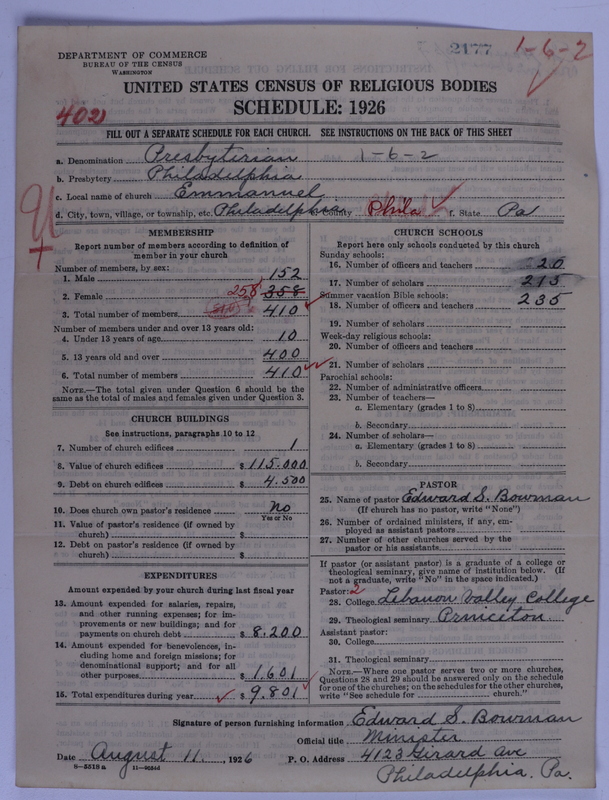 2177 1-6-2
DEPARTMENT OF COMMERCE
BUREAU OF THE CENSUS
WASHINGTON
UNITED STATES CENSUS OF RELIGIOUS BODIES
SCHEDULE: 1926
402
FILL OUT A SEPARATE SCHEDULE FOR EACH CHURCH. SEE INSTRUCTIONS ON THE BACK OF THIS SHEET
a. Denomination Presbyterian 1-6-2
b. Presbytery Philadelphia
c. Local name of church Emmanuel
d. City, town, village, or township, etc. Philadelphia e. County Phila f. State Pa
MEMBERSHIP
Report number of members according to definition of
member in your church
Number of members, by sex:
1. Male 152
2. Female 258 358
3. Total number of members 410
Number of members under and over 13 years old:
4. Under 13 years of age 10
5. 13 years old and over 400
6. Total number of members 410
NOTE.—The total given under Question 6 should be
same as the total of males and females given under Question 3.
CHURCH BUILDINGS
See instructions, paragraphs 10 to 12
7. Number of church edifices 1
8. Value of church edifices $ 115.000
9. Debt on church edifices $ 4.500
10. Does church own pastor's residence No
Yes or No
11. Value of pastor's residence (if owned by
church) $
12. Debt on pastor's residence (if owned by
church) $
EXPENDITURES
Amount expended by your church during last fiscal year
13. Amount expended for salaries, repairs,
and other running expenses; for im-
provements or new buildings; and for
payments on church debt $ 8.200
14. Amount expended for benevolences, in-
cluding home and foreign missions; for
denominational support; and for all
other purposes $ 1.601
15. Total expenditures during year $ 9.801
CHURCH SCHOOLS
Report here only schools conducted by this church
Sunday schools:
16. Number of officers and teachers 20
17. Number of scholars 215
Summer vacation Bible schools: 235
18. Number of officers and teachers
19. Number of scholars
Week-day religious schools:
20. Number of officers and teachers
21. Number of scholars
Parochial schools:
22. Number of administrative officers
23. Number of teachers—
a. Elementary (grades 1 to 8)
b. Secondary
24. Number of scholars—
a. Elementary (grades 1 to 8)
b. Secondary
PASTOR
25. Name of pastor Edward S. Bowman
(If church has no pastor, write "None")
26. Number of ordained ministers, if any, em-
ployed as assistant pastors
27. Number of other churches served by the
pastor or his assistants
If pastor (or assistant pastor) is a graduate of a college or
theological seminary, give name of institution below. (If
not a graduate, write "No" in the space indicated.)
Pastor: 2
28. College Lebanon Valley College
29. Theological seminary Princeton
Assistant pastor:
30. College
31. Theological seminary
NOTE.—Where one pastor serves two or more churches,
Questions 28 and 29 should be answered only on the schedule
for one of the churches; on the schedules for the other churches,
write "See schedule for church."
Signature of person furnishing information Edward S. Bowman
Official title Minister
Date August 11, 1926 P. O. Address 4123 Girard Ave
8—5518a Philadelphia. Pa.